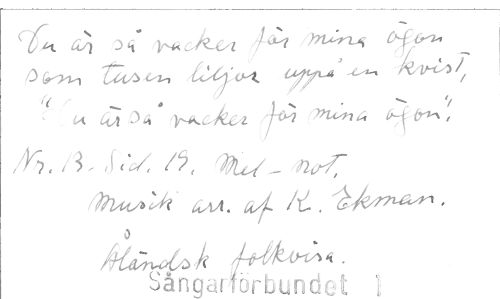 Du är så vacker för mina ögon
som tusen liljor uppå en kvist,
"Du är så vacker för mina ögon".
Nr. 13. Sid. 19. Mel-not.
Musik arr. af K. Ekman.
Åländsk folkvisa.
Sångarförbundet 1